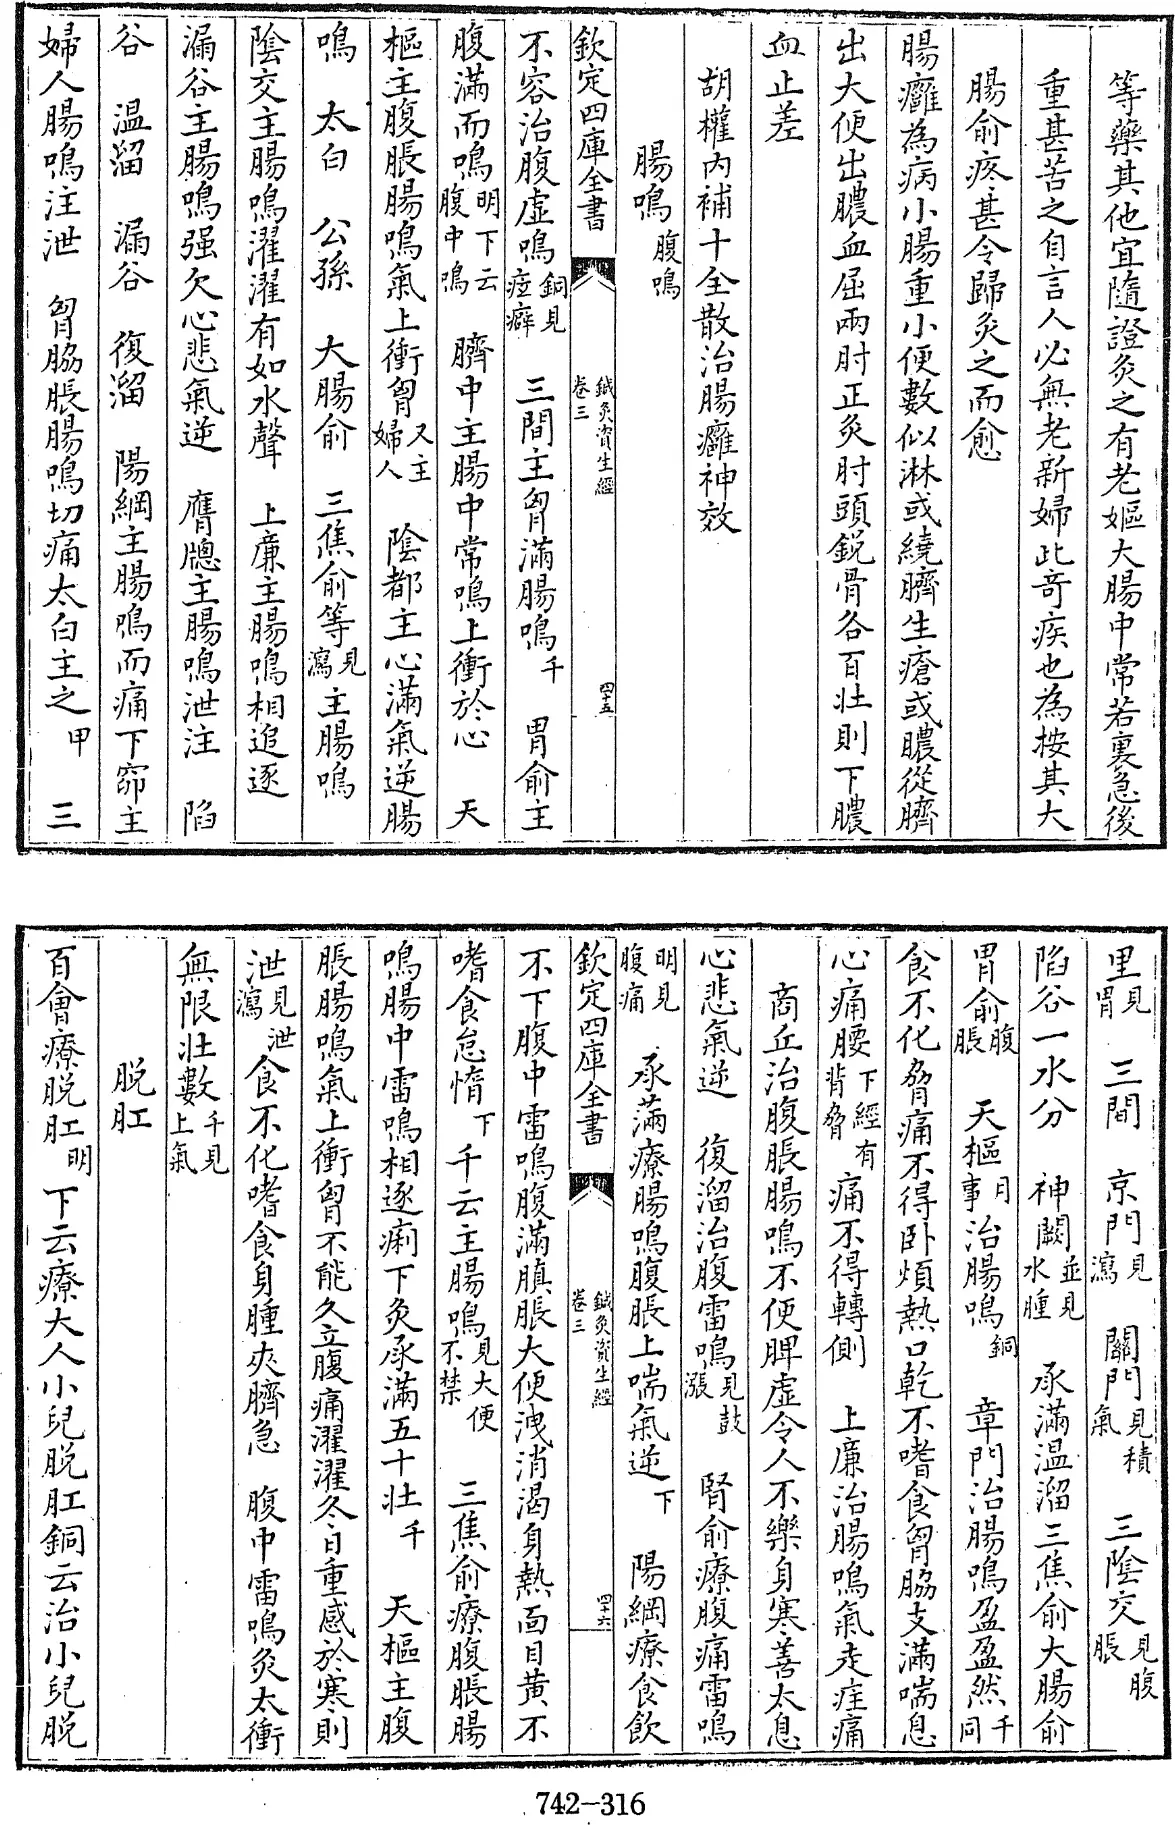 等藥其他宜隨證灸之有老嫗大腸中常若裏急後
重甚苦之自言人必無老新婦此奇疾也為按其大
腸俞疼甚令歸灸之而愈
腸癰為病小腸重小便數似淋或繞臍生瘡或膿從臍
出大便出膿血屈兩肘正灸肘頭鋭骨各百壯則下膿
血止差
胡權内補十全散治腸癰神效
腸鳴腹鳴
欽定四庫全書 鍼灸資生經卷三 四十五
不容治腹虚鳴銅見痃癖 三間主胷滿腸鳴千 胃俞主
腹滿而鳴明下云腹中鳴 臍中主腸中常鳴上衝於心 天
樞主腹脹腸鳴氣上衝胷又主婦人 陰都主心滿氣逆腸
鳴 太白 公孫 大腸俞 三焦俞等見瀉主腸鳴
陰交主腸鳴濯濯有如水聲 上廉主腸鳴相追逐
漏谷主腸鳴强欠心悲氣逆 膺牕主腸鳴泄注 陷
谷 温溜 漏谷 復溜 陽綱主腸鳴而痛下窌主
婦人腸鳴注泄 胷脇脹腸鳴切痛太白主之甲 三
里見胃 三間 京門見瀉 關門見積氣 三陰交見腹脹
陷谷一水分 神闕並見水腫 承滿温溜三焦俞大腸俞
胃俞腹脹 天樞月事治腸鳴銅 章門治腸鳴盈盈然千同
食不化脅痛不得卧煩熱口乾不嗜食胷脇支滿喘息
心痛腰下經有背脅痛不得轉側 上廉治腸鳴氣走疰痛
商丘治腹脹腸鳴不便脾虚令人不樂身寒善太息
心悲氣逆 復溜治腹雷鳴見鼓漲 腎俞療腹痛雷鳴
明見腹痛 承滿療腸鳴腹脹上喘氣逆下 陽綱療食飲
欽定四庫全書 鍼灸資生經卷三 四十六
不下腹中雷鳴腹滿䐜脹大便洩消渴身熱面目黄不
嗜食怠惰下 千云主腸鳴見大便不禁 三焦俞療腹脹腸
鳴腸中雷鳴相逐痢下灸承滿五十壯千 天樞主腹
脹腸鳴氣上衝胷不能久立腹痛濯濯冬日重感於寒則
泄見泄瀉食不化嗜食身腫夾臍急 腹中雷鳴灸太衝
無限壯數千見上氣
脱肛
百會療脱肛明下云療大人小兒脱肛銅云治小兒脱
742-316